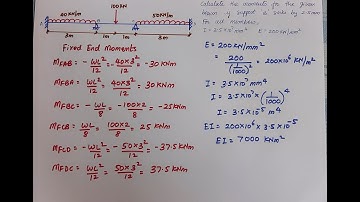 Calculate the moments for the given
beam if support B sinks by 2.5mm
For all members,
I = 3.5×10⁷mm⁴ E = 200KN/mm²
40KN/m
100KN
50KN/m
3m 1m 1m 3m
Fixed End Moments
MFAB = -WL²/12 = -40×3²/12 = -30KNm
MFBA = WL²/12 = 40×3²/12 = 30KNm
MFBC = -WL/8 = -100×2/8 = -25KNm
MFCB = WL/8 = 100×2/8 = 25KNm
MFCD = -WL²/12 = -50×3²/12 = -37.5KNm
MFDC = WL²/12 = 50×3²/12 = 37.5KNm
E = 200KN/mm²
= 200/(1/1000)² = 200×10⁶KN/m²
I = 3.5×10⁷mm⁴
I = 3.5×10⁷×(1/1000)⁴
I = 3.5×10⁻⁵m⁴
EI = 200×10⁶×3.5×10⁻⁵
EI = 7000KNm²